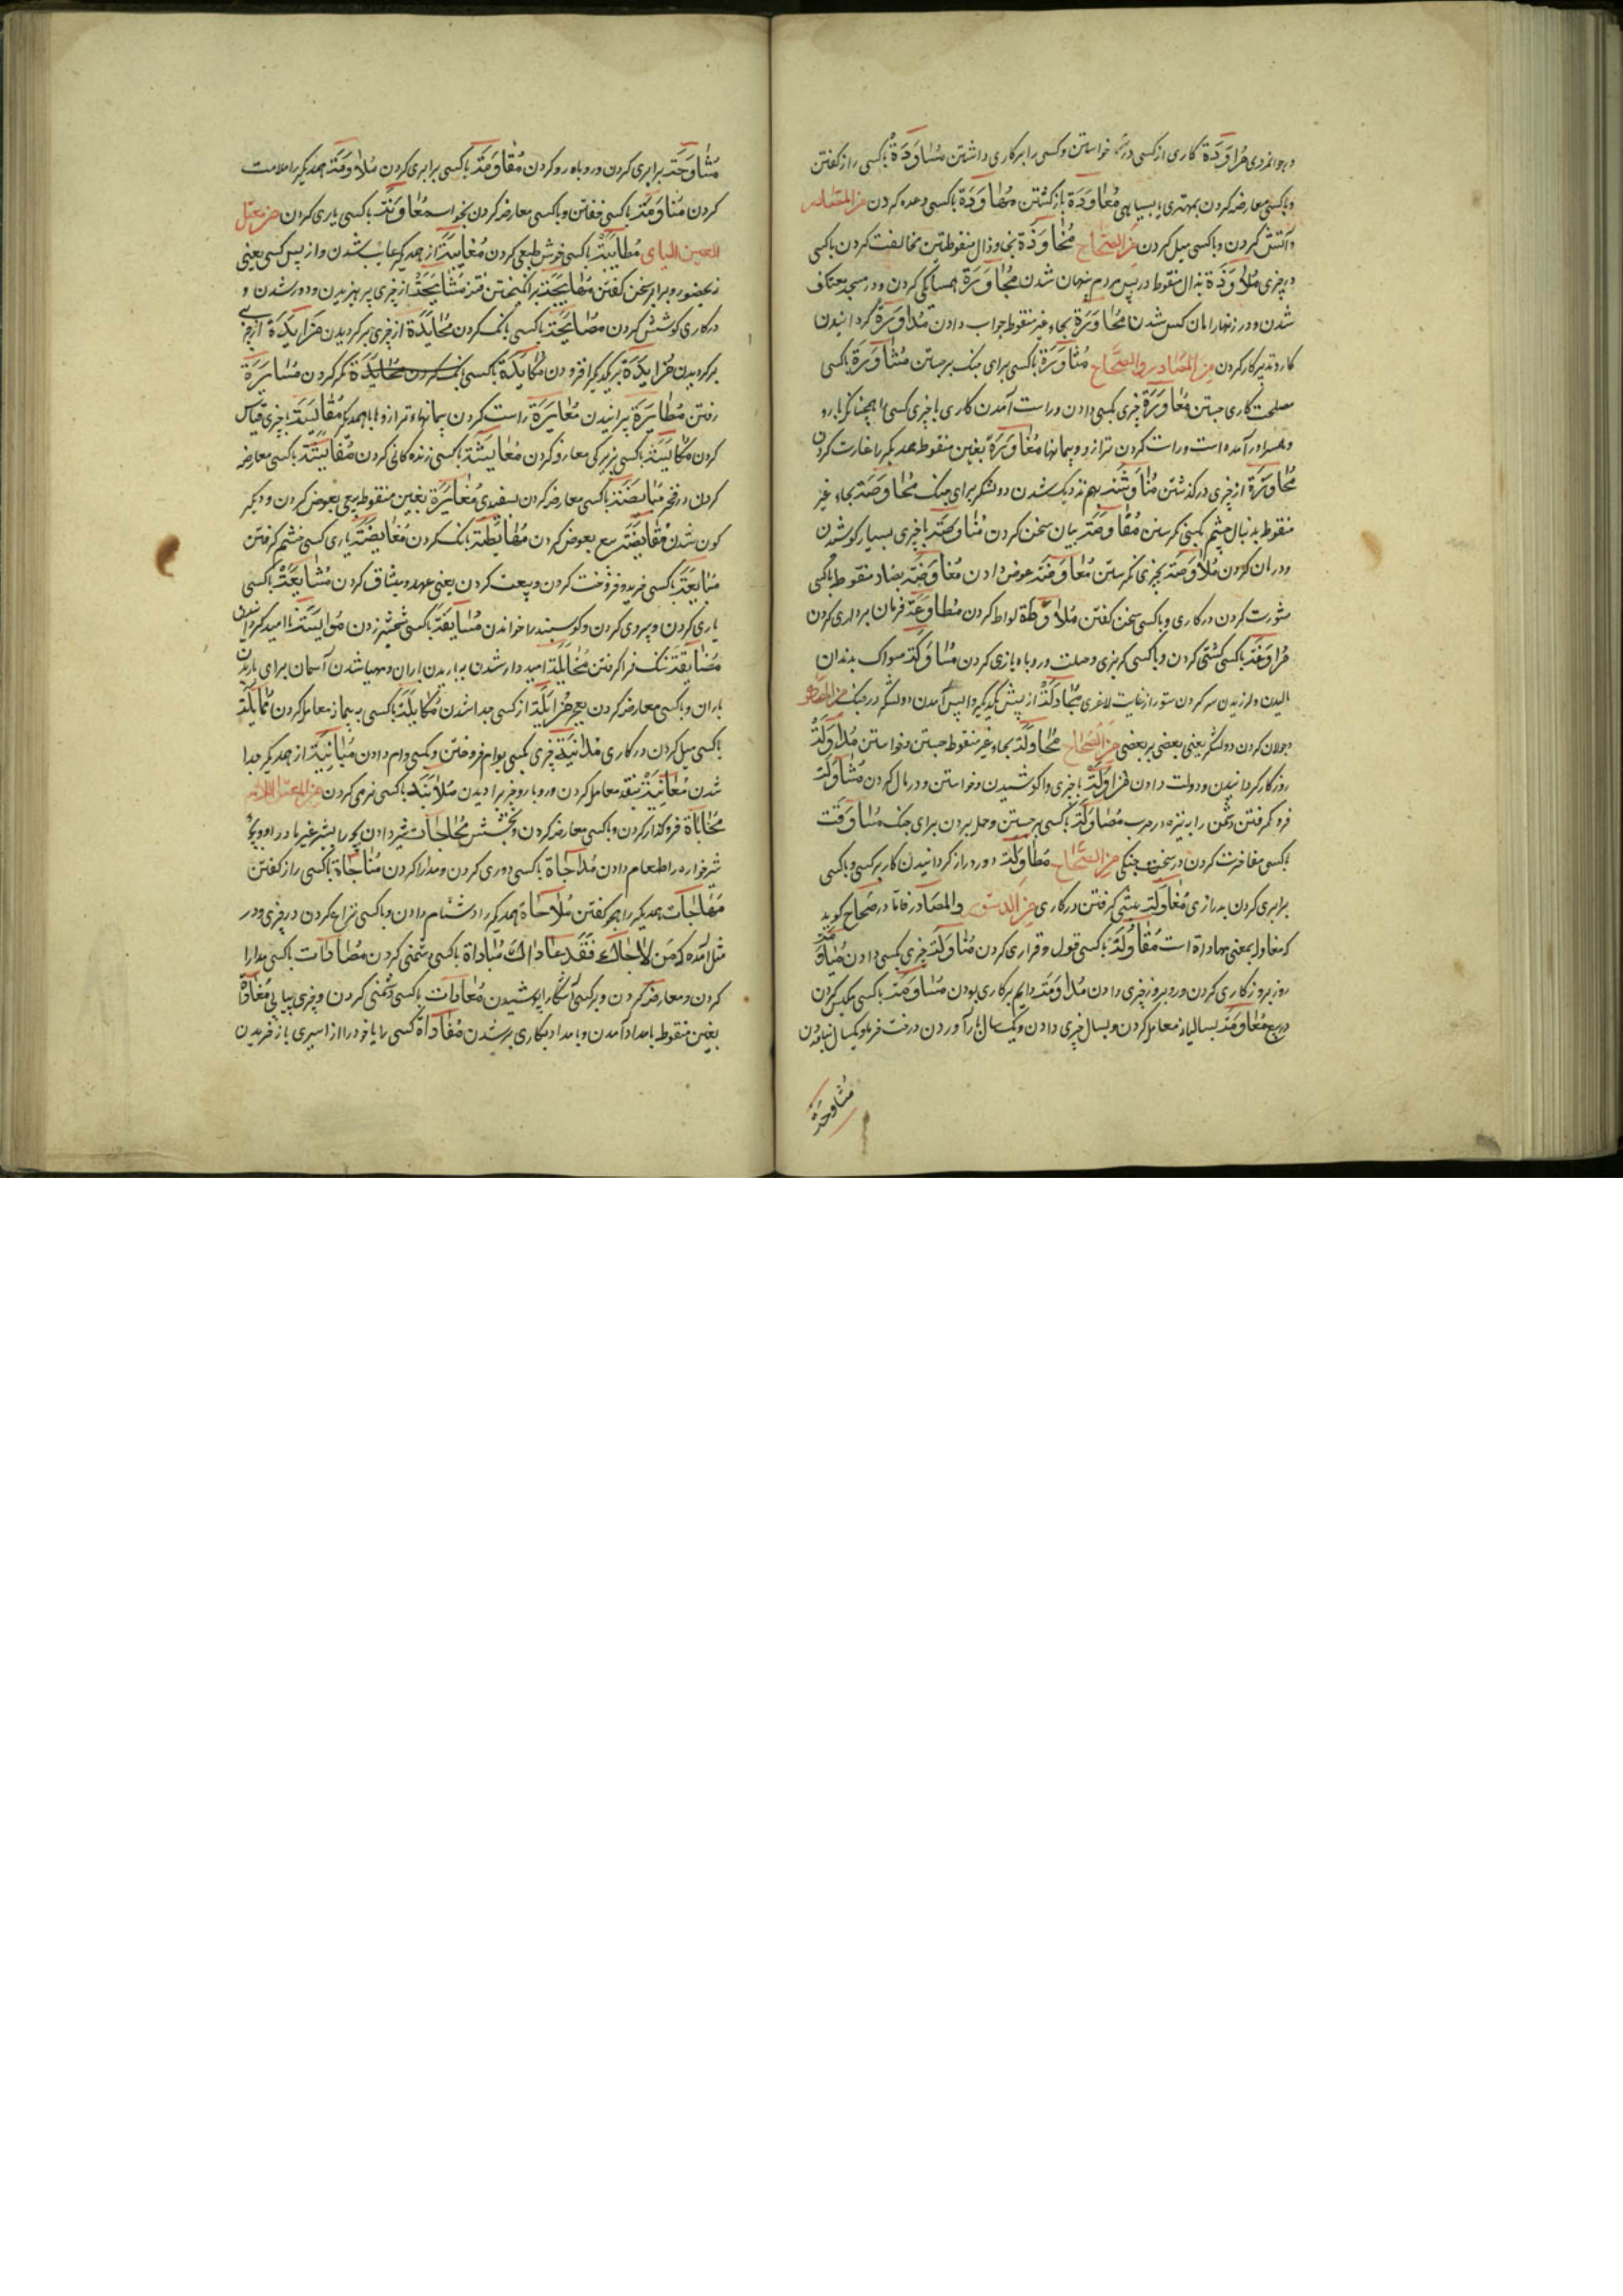 در جوانمردی مُراوَدَة کاری از کسی خواستن و کسی را بر کاری داشتن مُساوَدَة با کسی راز گفتن
و با کسی معارضه کردن بمهتری یا بسیاهی مُعاوَدَة باز گشتن مُهاوَدَة با کسی وعده کردن من المصادر
و آشتی کردن و با کسی میل کردن من الصحاح مُخاوَذَة بخا و ذال منقوطتین مخالفت کردن با کسی
در چیزی مُلاوَذَة بذال منقوط در پس مردم پنهان شدن مُجاوَرَة همسایگی کردن و در مسجد معتکف
شدن و در زنهار امان کس شدن مُحاوَرَة بحاء غیر منقوط جواب دادن مُداوَرَة گردانیدن
کار و تدبیر کار کردن من المصادر والصحاح مُثاوَرَة با کسی برای جنک برجستن مُشاوَرَة با کسی
مصلحت کاری جستن مُعاوَرَة چیزی بکسی دادن و راست آمدن کاری با چیزی کسی را
و راست کردن ترازو و پیمانها مُغاوَرَة بغین منقوط همدیگر را غارت کردن
مُجاوَزَة از چیزی در گذشتن مُناوَشَة بهم نزدیک شدن دو لشکر برای جنک مُحاوَصَة بحاء غیر
منقوط بدنبال چشم بکسی نگرستن مُفاوَصَة بیان سخن کردن با چیزی بسیار کوشیدن
و درمان کردن مُلاوَصَة بچیزی نگرستن مُعاوَضَة عوض دادن مُفاوَضَة بضاد منقوط با کسی
مشورت کردن در کاری و با کسی سخن گفتن مُلاوَطَة لواط کردن مُطاوَعَة فرمان برداری کردن
مُراوَغَة با کسی کشتی کردن و با کسی گربزی و حیلت و روباه بازی کردن مُساوَکَة مسواک بدندان
مالیدن و لرزیدن سر کردن ستور از غایت لاغری مُجاوَلَة از پیش یکدیگر واپس آمدن دو لشکر در جنک من المصادر
و جولان کردن دو لشکر یعنی بعضی بر بعضی من الصحاح مُحاوَلَة بحاء غیر منقوط جستن و خواستن مُداوَلَة
روزگار گردانیدن و دولت دادن مُزاوَلَة با چیزی واکوشیدن و خواستن و درمان کردن مُشاوَلَة
فرو گرفتن دشمن را بنیزه در حرب مُصاوَلَة با کسی برجستن و حمله بردن برای جنک
با کسی مفاخرت کردن در سخن و جنگی من الصحاح مُطاوَلَة دور و دراز گردانیدن کار بر کسی و با کسی
برابری کردن بدرازی مُغاوَلَة پیشی گرفتن در کاری من الدستور والمصادر فاما در صحاح گوید
که مغاوله بمعنی مبادره است مُقاوَلَة با کسی قول و قراری کردن مُناوَلَة چیزی بکسی دادن مُیاوَمَة
روز بروز کاری کردن و روز بروز چیزی دادن مُداوَمَة دایم بر کاری بودن مُساوَمَة با کسی مکیس کردن
در بیع مُعاوَمَة بسالیانه معامله کردن و بسال چیزی دادن و یکسال بار آوردن درخت خرما و یکسال نیاوردن
مُشاوحَة
مُشاوَحَة برابری کردن و روباه رو کردن مُقاوَمَة با کسی برابری کردن مُلاوَمَة همدیگر را ملامت
کردن مُناوَمَة با کسی خفتن و با کسی معارضه کردن بخواب مُعاوَنَة با کسی یاری کردن من معتل
العین الیای مُطایَبَة با کسی خوش طبعی کردن مُغایَبَة از همدیگر غایب شدن و از پس کسی یعنی
نه بحضور و برابر سخن گفتن مُهایَجَة بر انگیختن فتنه مُشایَحَة از چیزی پرهیزیدن و دور شدن و
در کاری کوشش کردن مُصایَحَة با کسی بانک کردن مُحایَدَة از چیزی برگردیدن
برگردیدن مُزایَدَة بر یکدیگر افزودن مُکایَدَة با کسی مکر کردن مُسایَرَة
رفتن مُطایَرَة پرانیدن مُعایَرَة راست کردن پیمانها و ترازوها با همدیگر مُقایَسَة با چیزی قیاس
کردن مُکایَسَة با کسی زیرکی معارضه کردن مُعایَشَة با کسی زندگانی کردن مُفایَشَة با کسی معارضه
کردن در فخر مُبایَضَة با کسی معارضه کردن بسفیدی مُغایَرَة بغین منقوط بیع بعوض کردن و دیگر
گون شدن مُقایَضَة بیع بعوض کردن مُطایَطَة بانک کردن مُغایَضَة یاری کسی خشم گرفتن
مُبایَعَة با کسی خرید و فروخت کردن و بیعت کردن یعنی عهد و میثاق کردن مُشایَعَة با کسی
یاری کردن و پیروی کردن و گوسپند را خواندن مُسایَفَة با کسی شمشیر زدن نا امید گردانیدن
مُضایَقَة تنک فرا گرفتن مُخایَلَة امیدوار شدن بباریدن باران و مهیا شدن آسمان برای باریدن
باران و با کسی معارضه کردن مُزایَلَة از کسی جدا شدن مُکایَلَة با کسی به پیمانه معامله کردن مُمایَلَة
با کسی میل کردن در کاری مُدایَنَة چیزی بکسی بوام فروختن و بکسی وام دادن مُبایَنَة از همدیگر جدا
شدن مُعایَنَة بنقد معامله کردن و رویارو چیز را دیدن مُلایَنَة با کسی نرمی کردن من المعتل اللام
مُحاباة فرو گذار کردن و با کسی معارضه کردن و بخشش شیر دادن بچه را بشیر غیر مادر او و بچه
شیرخواره را طعام دادن مُداجاة با کسی دوری کردن و مدارا کردن مُناجاة با کسی راز گفتن
مُهاجات همدیگر را هجو گفتن مُلاحاة همدیگر را دشنام دادن و با کسی نزاع کردن در چیزی و در
مثل آمده که من لاحاک فقد عاداک مُباداة با کسی دشمنی کردن مُصادات با کسی مدارا
کردن و معارضه کردن و بر کسی آشکارا پوشیدن مُعادات با کسی دشمنی کردن و چیزی پیاپی مُغاداة
بغین منقوط بامداد آمدن و بامداد بکاری بر شدن مُفاداة کسی را یا خود را از اسیری باز خریدن